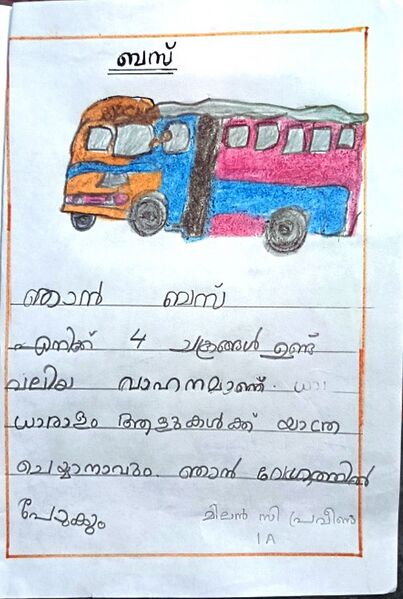 ബസ്
ഞാൻ ബസ്
എനിക്ക് 4 ചക്രങ്ങൾ ഉണ്ട്
വലിയ വാഹനമാണ്.
ധാരാളം ആളുകൾക്ക് യാത്ര
ചെയ്യാനാവും. ഞാൻ വേഗത്തിൽ
പോകും
മിലൻ സി പ്രവീൺ
1 A